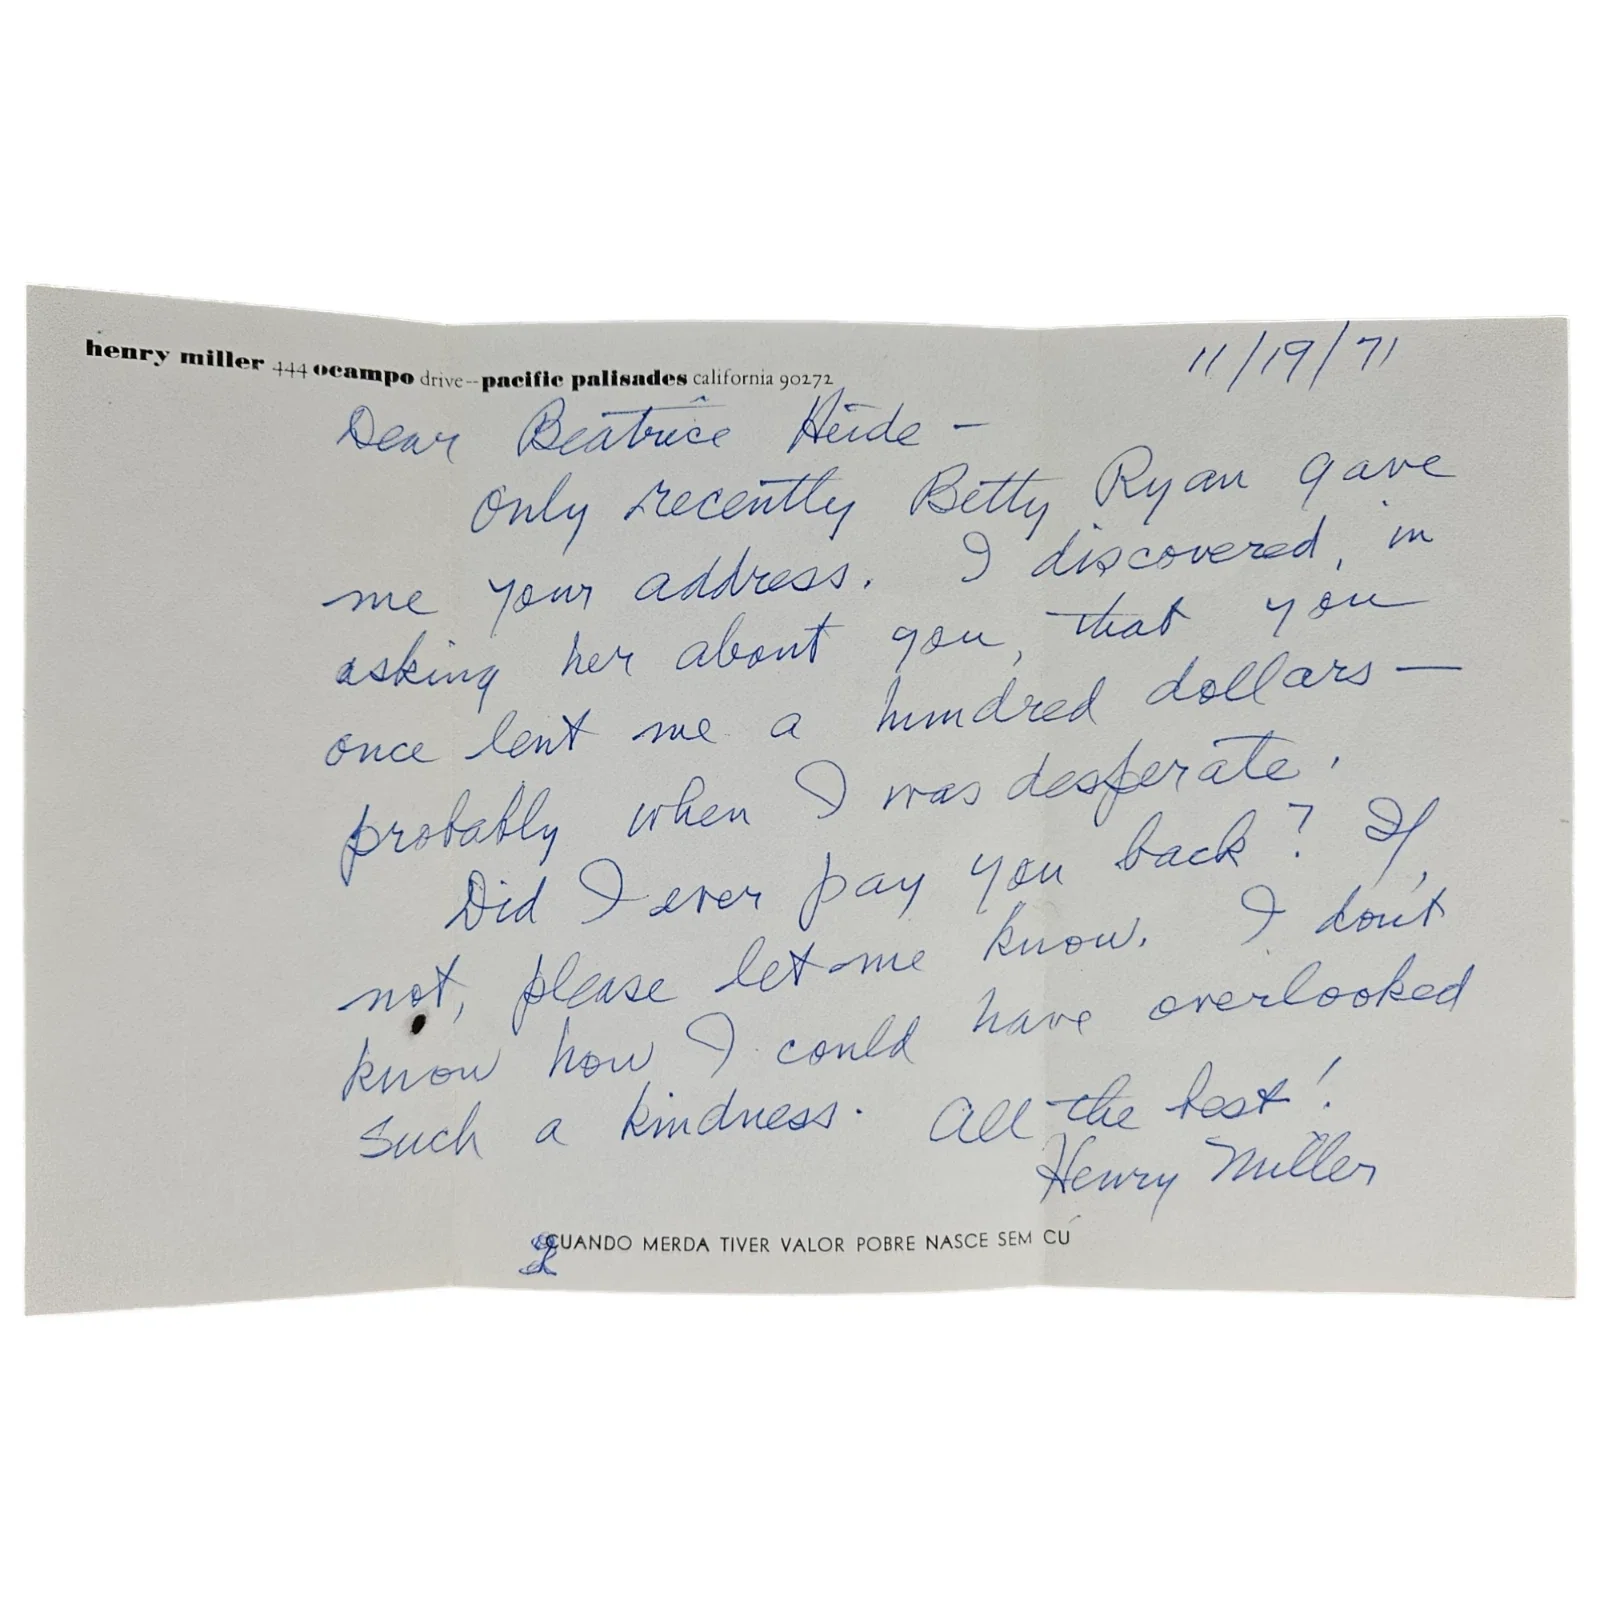 henry miller 444 ocampo drive--pacific palisades california 90272
11/19/71
Dear Beatrice Heide —
Only recently Betty Ryan gave
me your address. I discovered, in
asking her about you, that you
once lent me a hundred dollars —
probably when I was desperate.
Did I ever pay you back? If
not, please let me know. I don't
know how I could have overlooked
such a kindness. All the best!
Henry Miller
QUANDO MERDA TIVER VALOR POBRE NASCE SEM CÚ